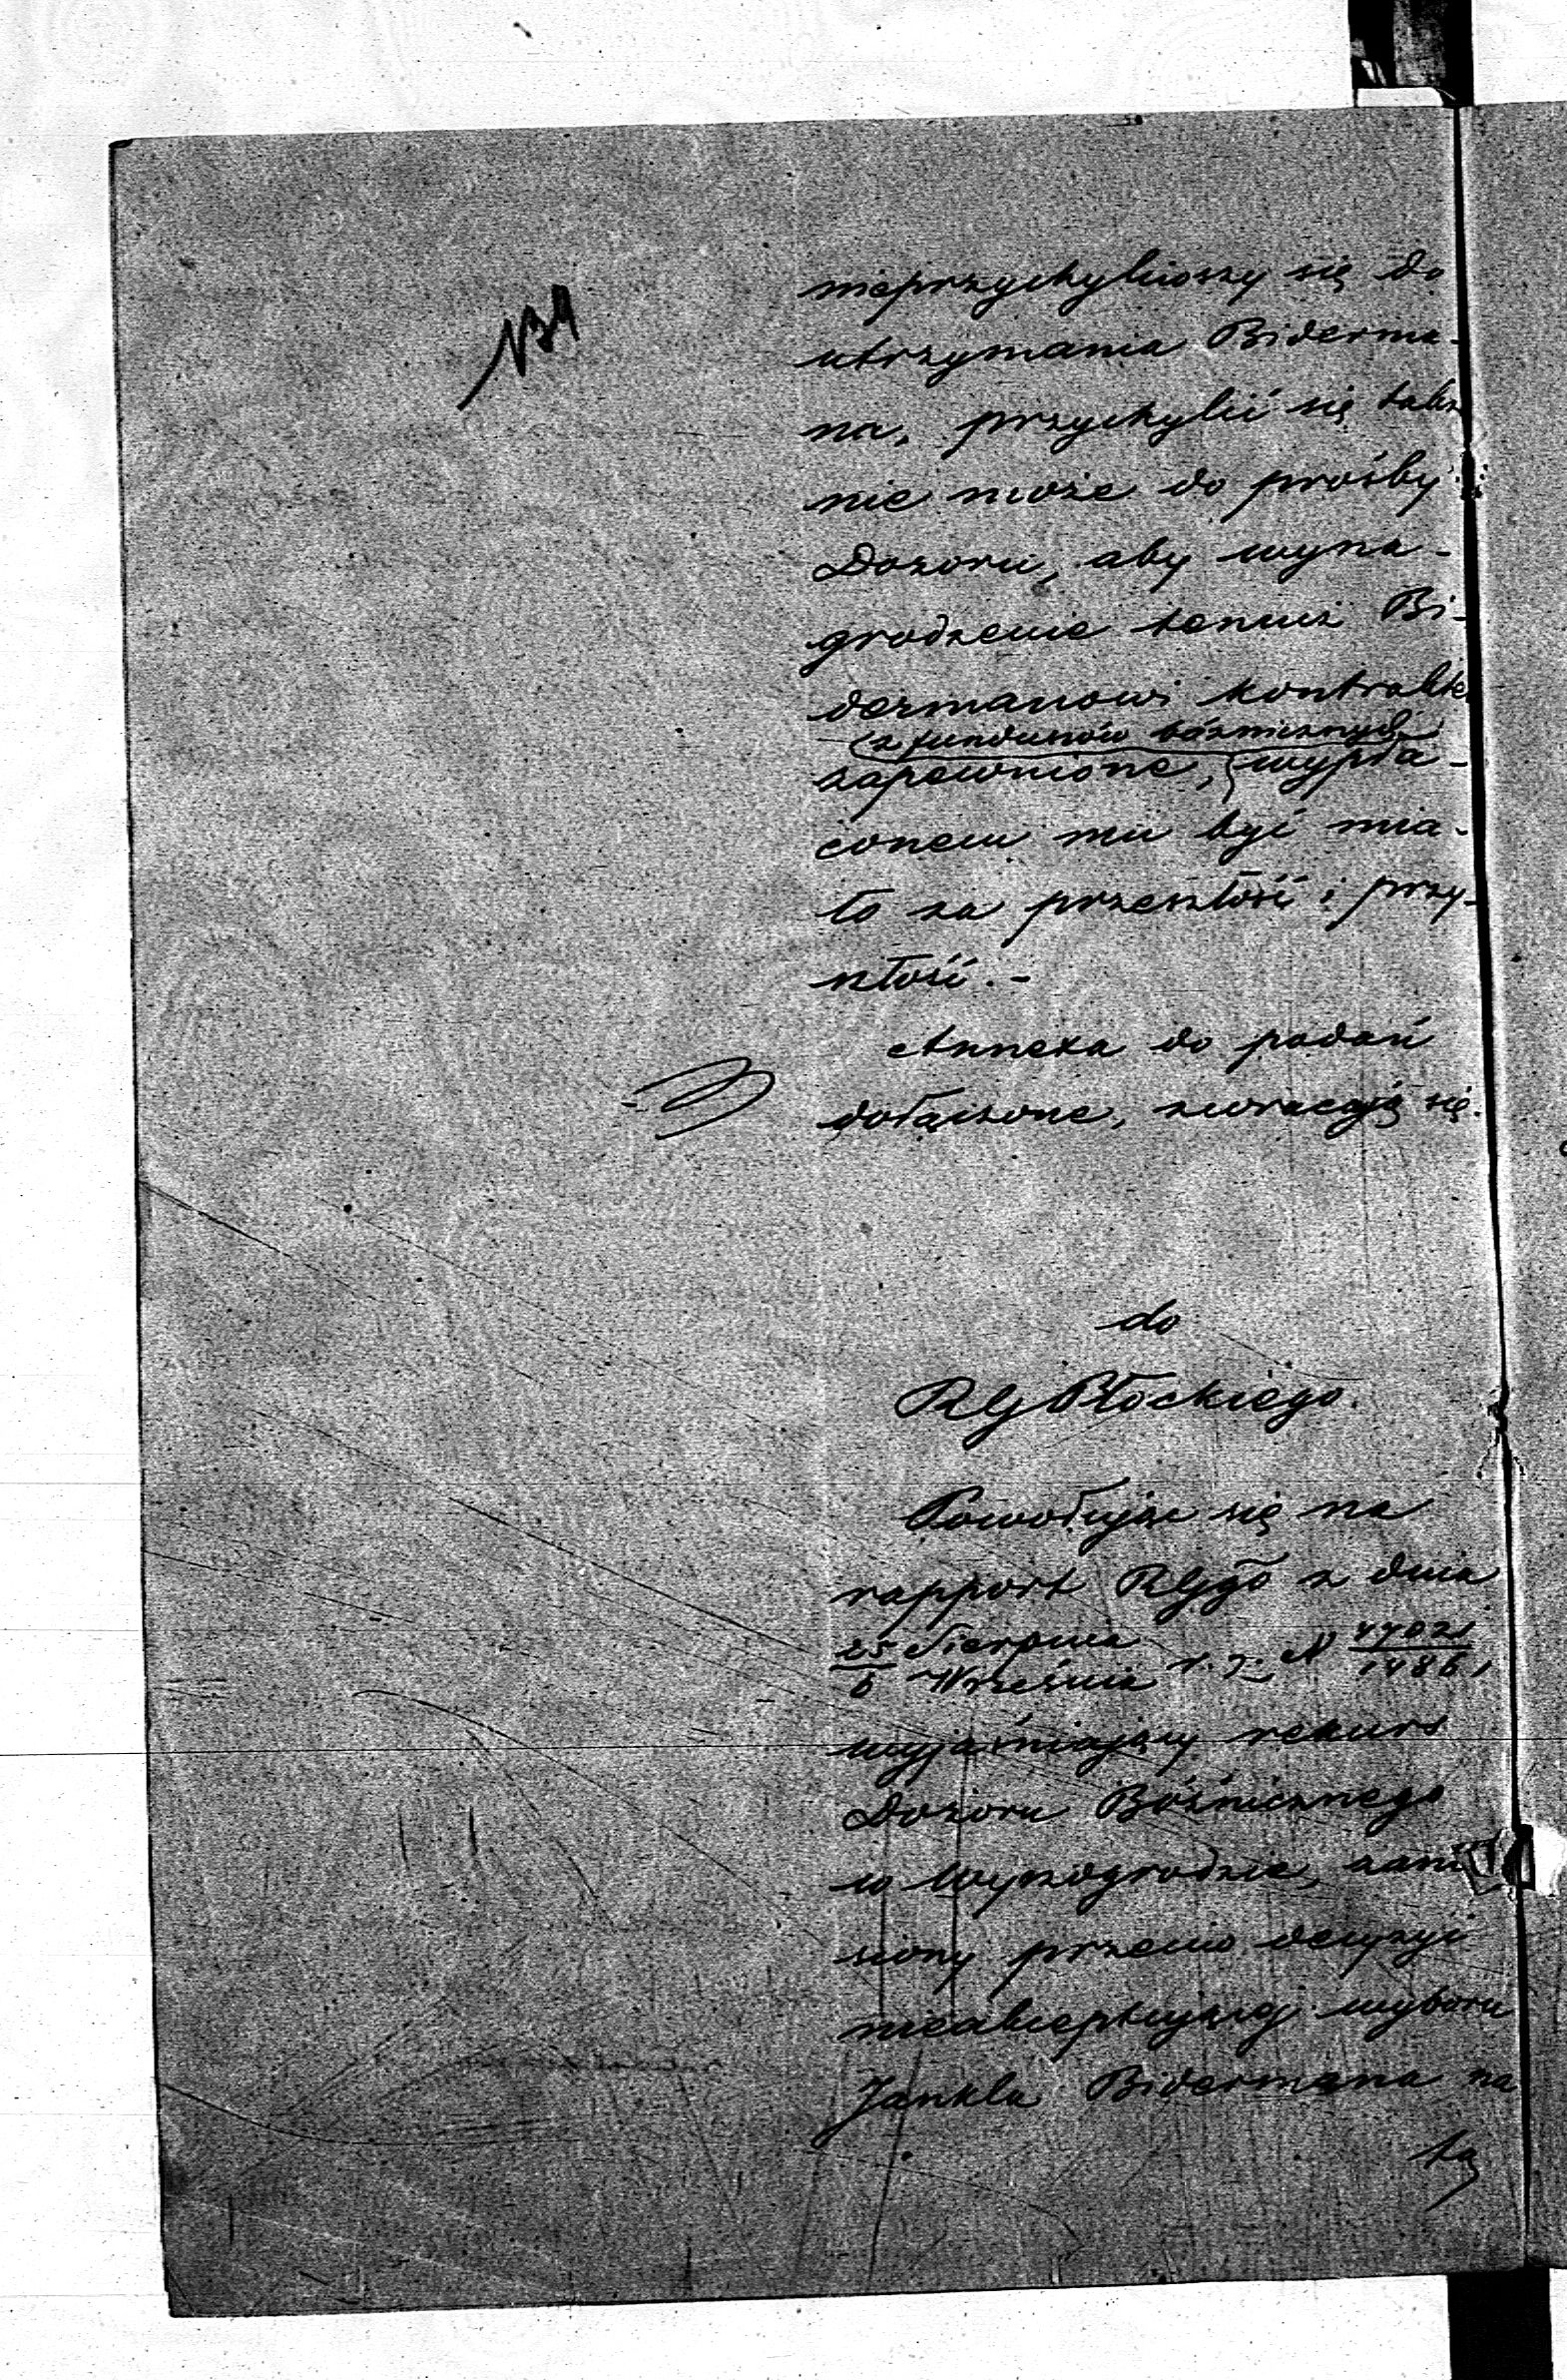 nieprzychyliwszy się do
utrzymania Biderma-
na, przychylić się także
nie może do prośby
Dozoru, aby wyna-
grodzenie temuż Bi-
dermanowi kontraktem
z funduszów bóźnicznych
zapewnione, wypła-
conem mu być mia-
ło za przeszłość i przy-
szłość.-
Annexa do podań
dołączone, zwracają się.
do
RG Płockiego.
Powołując się na
rapport RGgo z dnia
25 Sierpnia
6 Września r. z. N 47021/1486,
wyjaśniający rekurs
Dozoru Bóźnicznego
w Wyszogrodzie, zanie
siony przeciw decyzyi
nieakceptującej wyboru
Jankla Bidermana na